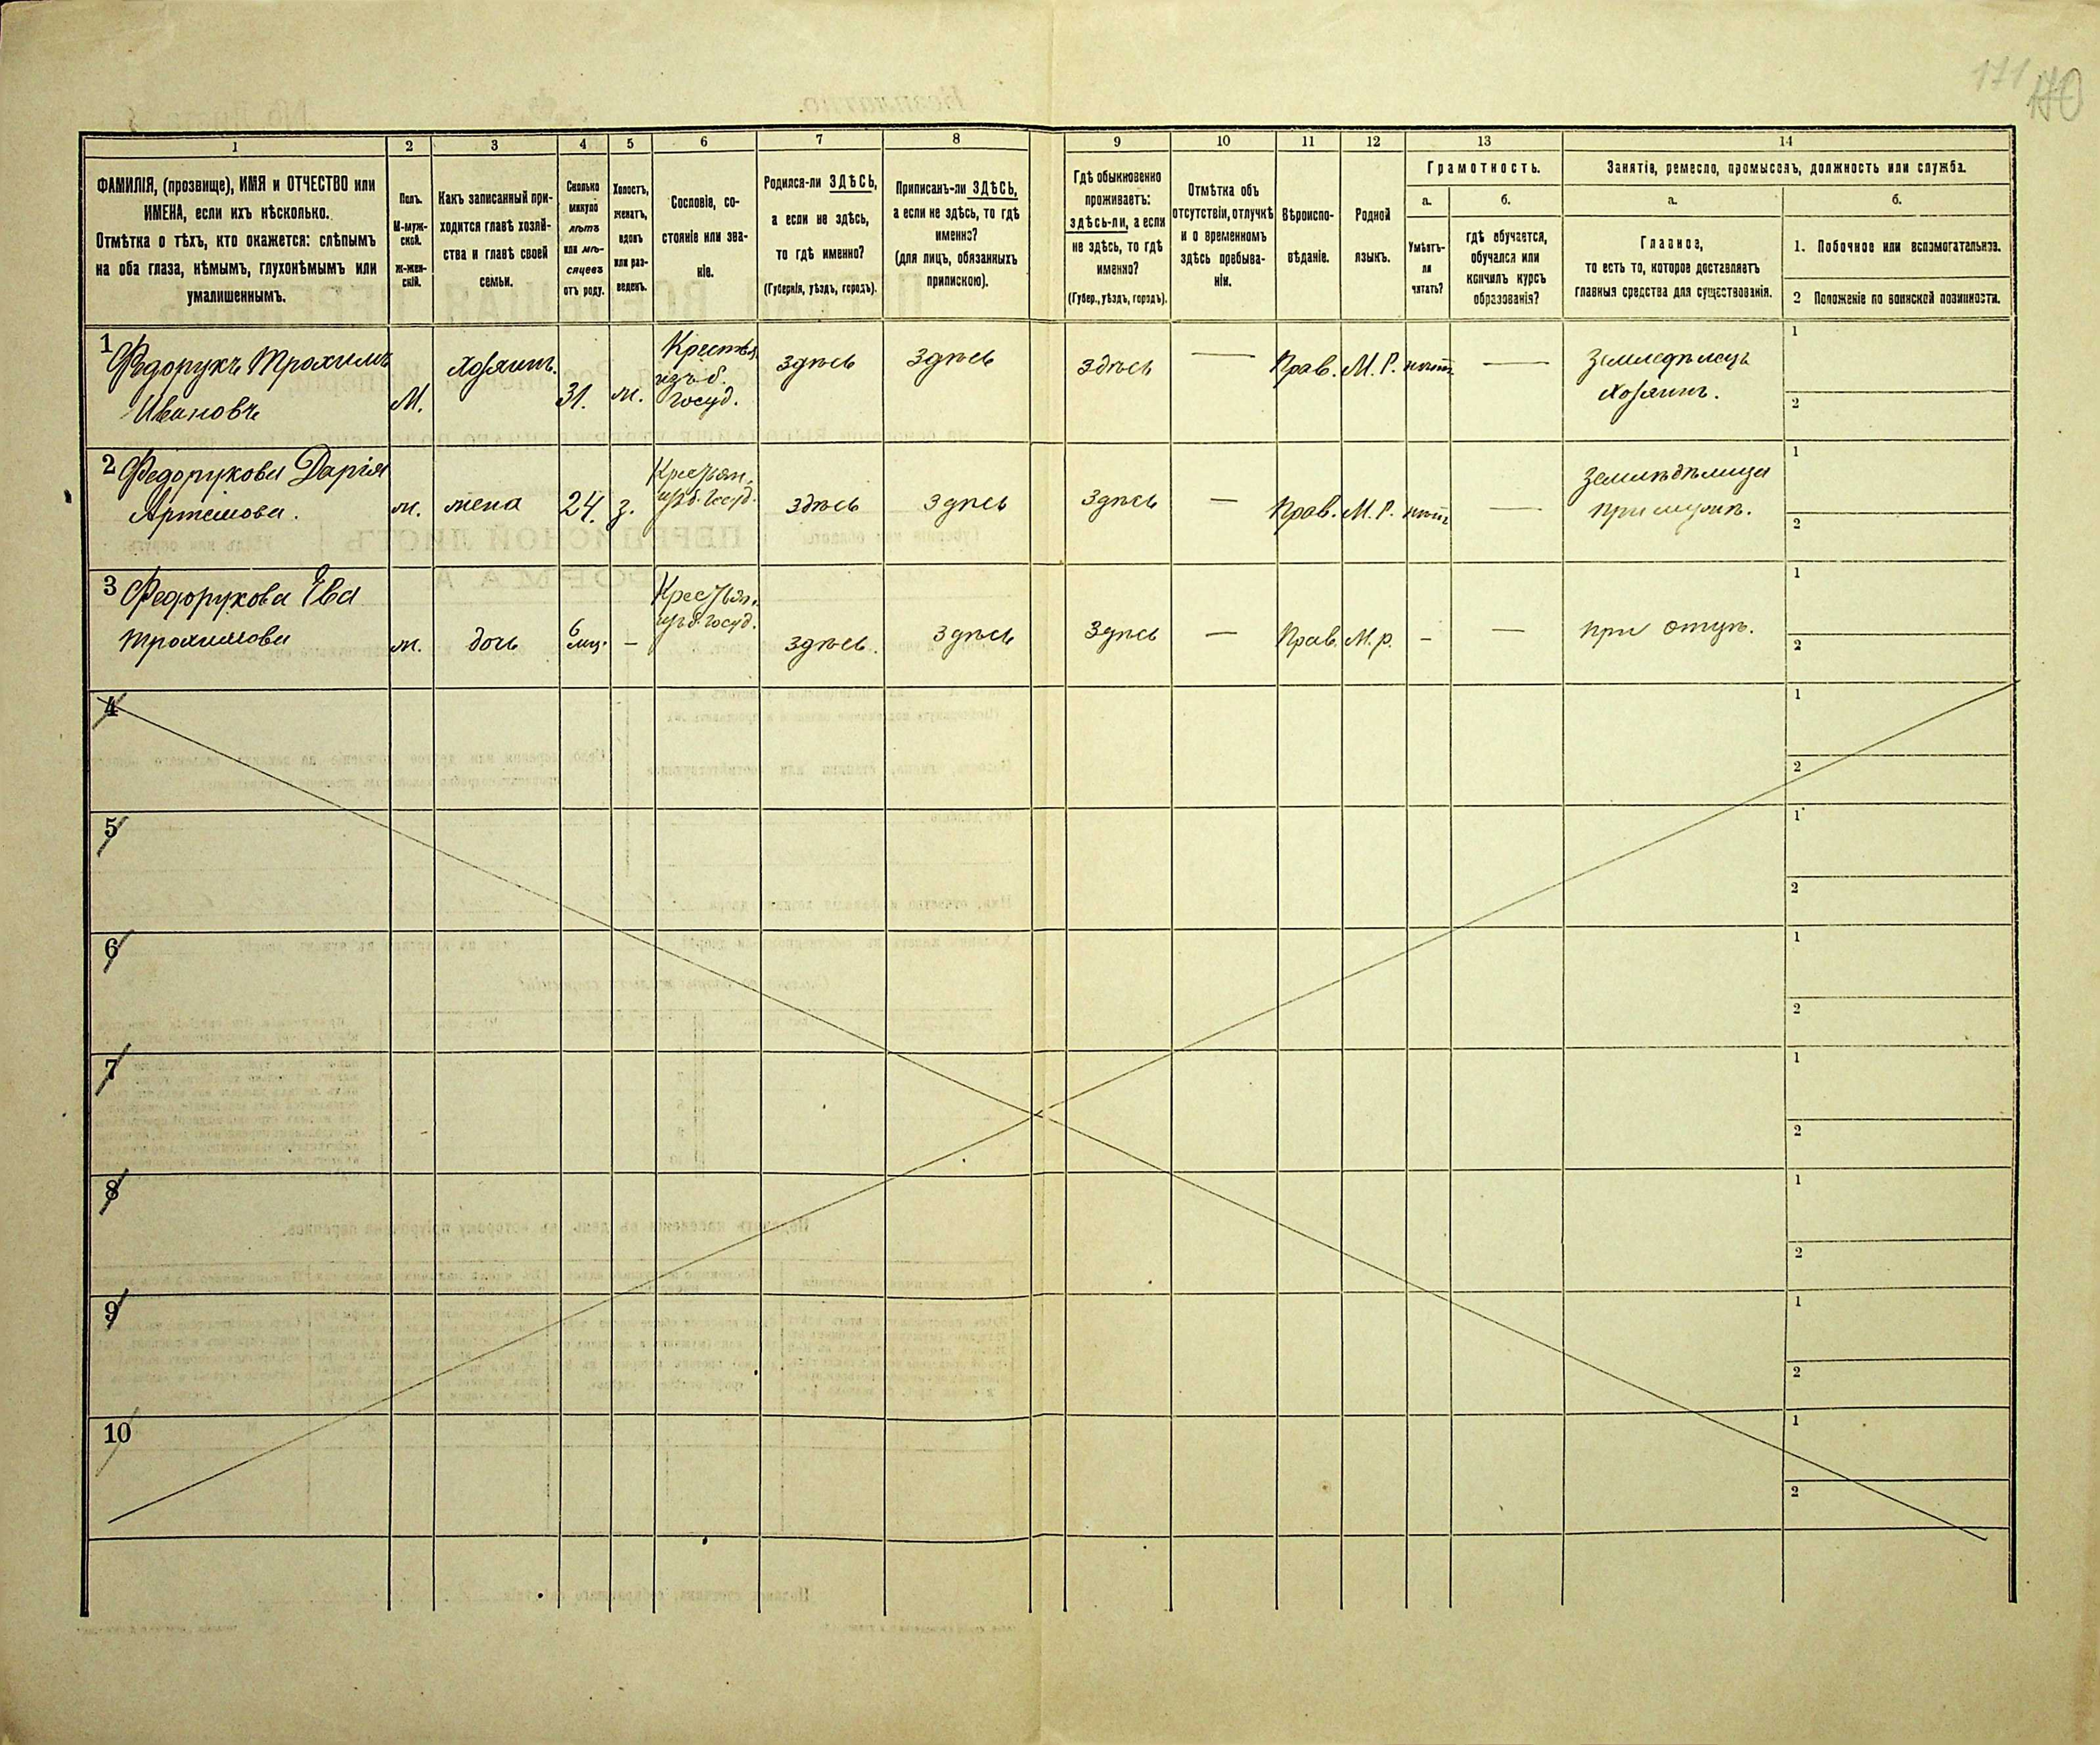 171 170
1
2
3
4
5
6
7
8
9
10
11
12
13
14
ФАМИЛІЯ, (прозвище), ИМЯ и ОТЧЕСТВО или
ИМЕНА, если ихъ нѣсколько.
Отмѣтка о тѣхъ, кто окажется: слѣпымъ
на оба глаза, нѣмымъ, глухонѣмымъ или
умалишеннымъ.
Полъ.
М-муж-
ской.
Ж-жен-
скій.
Какъ записанный при-
ходится главѣ хозяй-
ства и главѣ своей
семьи.
Сколько
минуло
лѣтъ
или мѣ-
сяцевъ
отъ роду.
Холостъ,
женатъ,
вдовъ
или раз-
веденъ.
Сословіе, со-
стояніе или зва-
ніе.
Родился-ли ЗДѢСЬ,
а если не здѣсь,
то гдѣ именно?
(Губернія, уѣздъ, городъ).
Приписанъ-ли ЗДѢСЬ,
а если не здѣсь, то гдѣ
именно?
(для лицъ, обязанныхъ
припискою).
Гдѣ обыкновенно
проживаетъ:
здѣсь-ли, а если
не здѣсь, то гдѣ
именно?
(Губер., уѣздъ, городъ).
Отмѣтка объ
отсутствіи, отлучкѣ
и о временномъ
здѣсь пребыва-
ніи.
Вѣроиспо-
вѣданіе.
Родной
языкъ.
Грамотность.
а.
Умѣетъ-
ли
читать?
б.
гдѣ обучается,
обучался или
кончилъ курсъ
образованія?
Занятіе, ремесло, промыселъ, должность или служба.
а.
Главное,
то есть то, которое доставляетъ
главныя средства для существованія.
б.
1. Побочное или вспомогательное.
2 Положеніе по воинской повинности.
1 Федорукъ Трохимъ
Ивановъ
М.
Хозяинъ.
31.
ж.
Крестья
изъ б.
Госуд.
здѣсь
здѣсь
здѣсь
—
Прав.
М. Р.
нѣтъ
—
Земледѣлецъ
Хозяинъ.
1
2
2 Федорукова Дарія
Артемова.
ж.
жена
24.
з.
Крестьян.
изъ б. Госуд.
здѣсь
здѣсь
здѣсь
—
Прав.
М. Р.
нѣтъ
—
Земледѣлица
при мужѣ.
1
2
3 Федорукова Ева
Трохимова
ж.
дочь
6
мц.
—
Крестьян.
изъ б. госуд.
здѣсь.
здѣсь
здѣсь
—
Прав.
М. р.
-
—
при отцѣ.
1
2
4
1
2
5
1
2
6
1
2
7
1
2
8
1
2
9
1
2
10
1
2